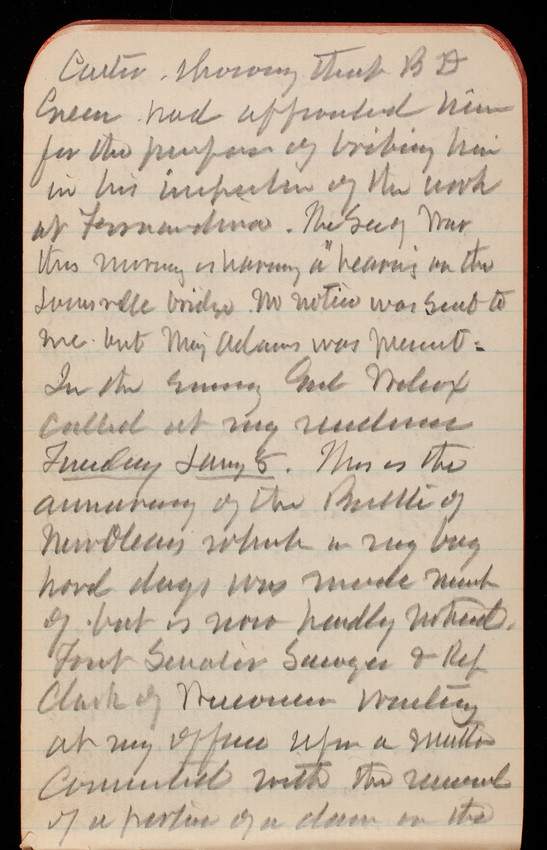 Carter, showing that B D
Green had approached him
for the purpose of bribing him
in his inspection of the work
at Fernandina. The Sec of War
this morning is having a "hearing on the
Louisville bridge. No notice was sent to
me but Maj Adams was present.
In the evening Genl Wilcox
called at my residence
Tuesday Jany 8. This is the
anniversary of the Battle of
New Orleans which in my boy
hood days was made much
of but is now hardly noticed.
Found Senator Sawyer & Rep
Clark of Wisconsin waiting
at my office upon a matter
connected with the removal
of a portion of a dam on the